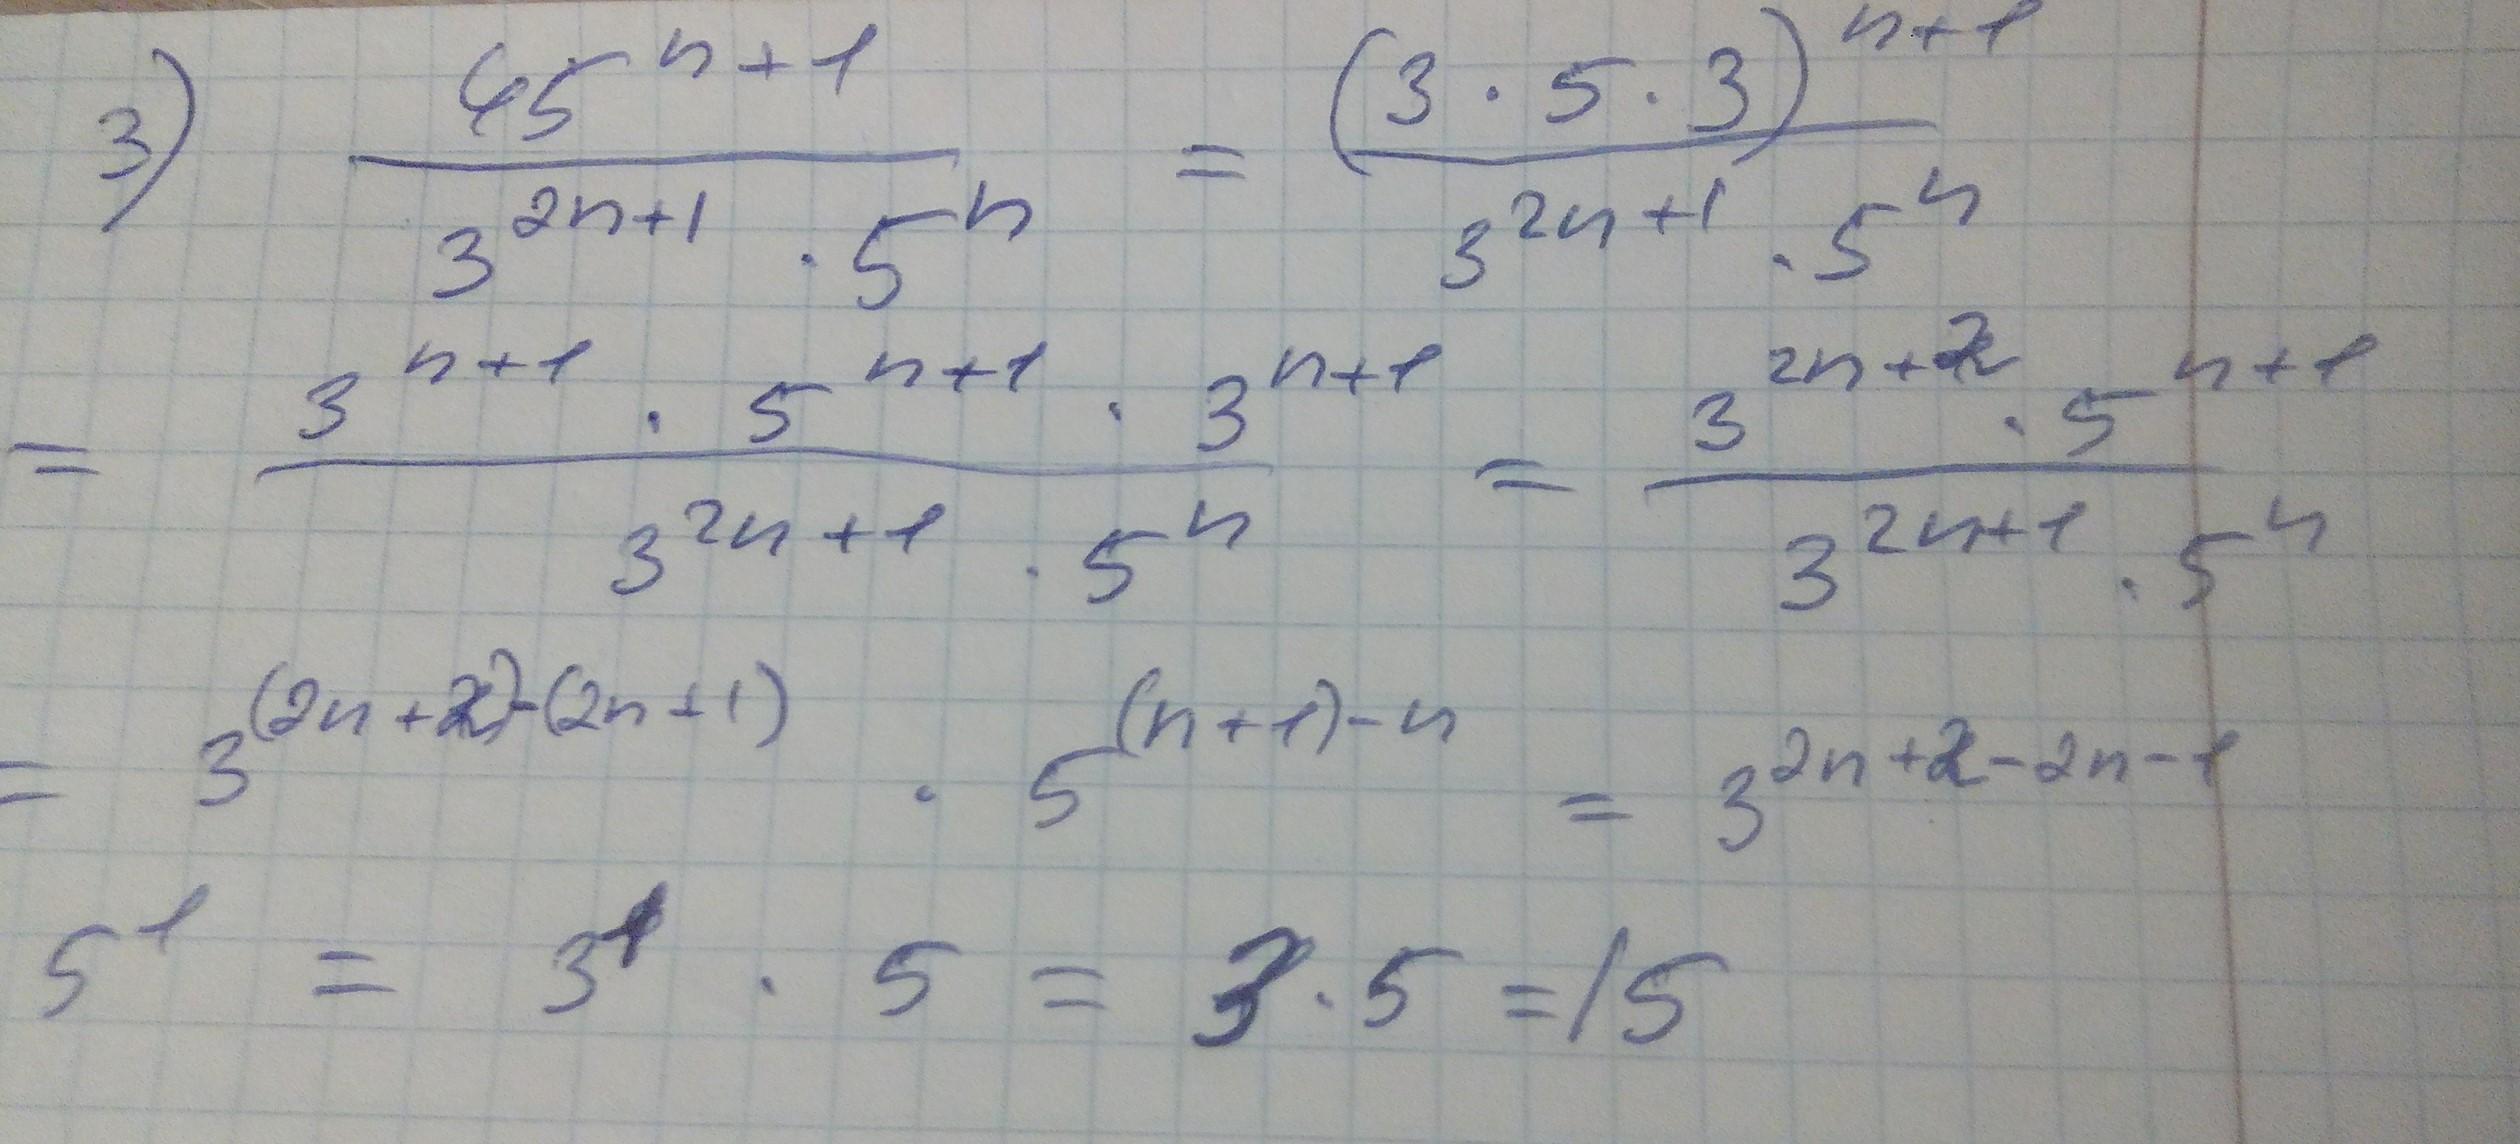 3) 45^{n+1} / (3^{2n+1} · 5^n) = (3 · 5 · 3)^{n+1} / (3^{2n+1} · 5^n)
= (3^{n+1} · 5^{n+1} · 3^{n+1}) / (3^{2n+1} · 5^n) = (3^{2n+2} · 5^{n+1}) / (3^{2n+1} · 5^n)
= 3^{(2n+2)-(2n+1)} · 5^{(n+1)-n} = 3^{2n+2-2n-1}
5^1 = 3^1 · 5 = 3 · 5 = 15